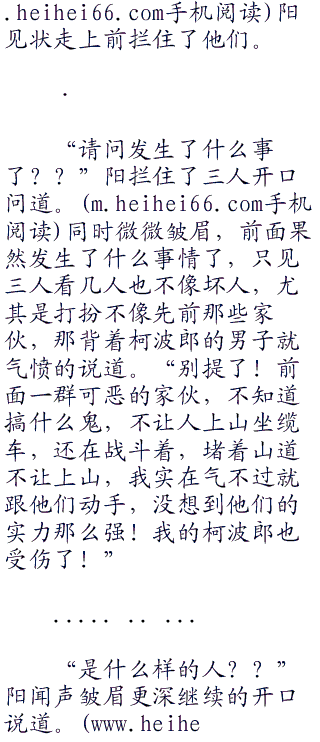 .heihei66.com手机阅读)阳
见状走上前拦住了他们。
.
“请问发生了什么事
了？？”阳拦住了三人开口
问道。(m.heihei66.com手机
阅读)同时微微皱眉，前面果
然发生了什么事情了，只见
三人看几人也不像坏人，尤
其是打扮不像先前那些家
伙，那背着柯波郎的男子就
气愤的说道。“别提了！前
面一群可恶的家伙，不知道
搞什么鬼，不让人上山坐缆
车，还在战斗着，堵着山道
不让上山，我实在气不过就
跟他们动手，没想到他们的
实力那么强！我的柯波郎也
受伤了！”
..... .. ...
“是什么样的人？？”
阳闻声皱眉更深继续的开口
说道。(www.heihe